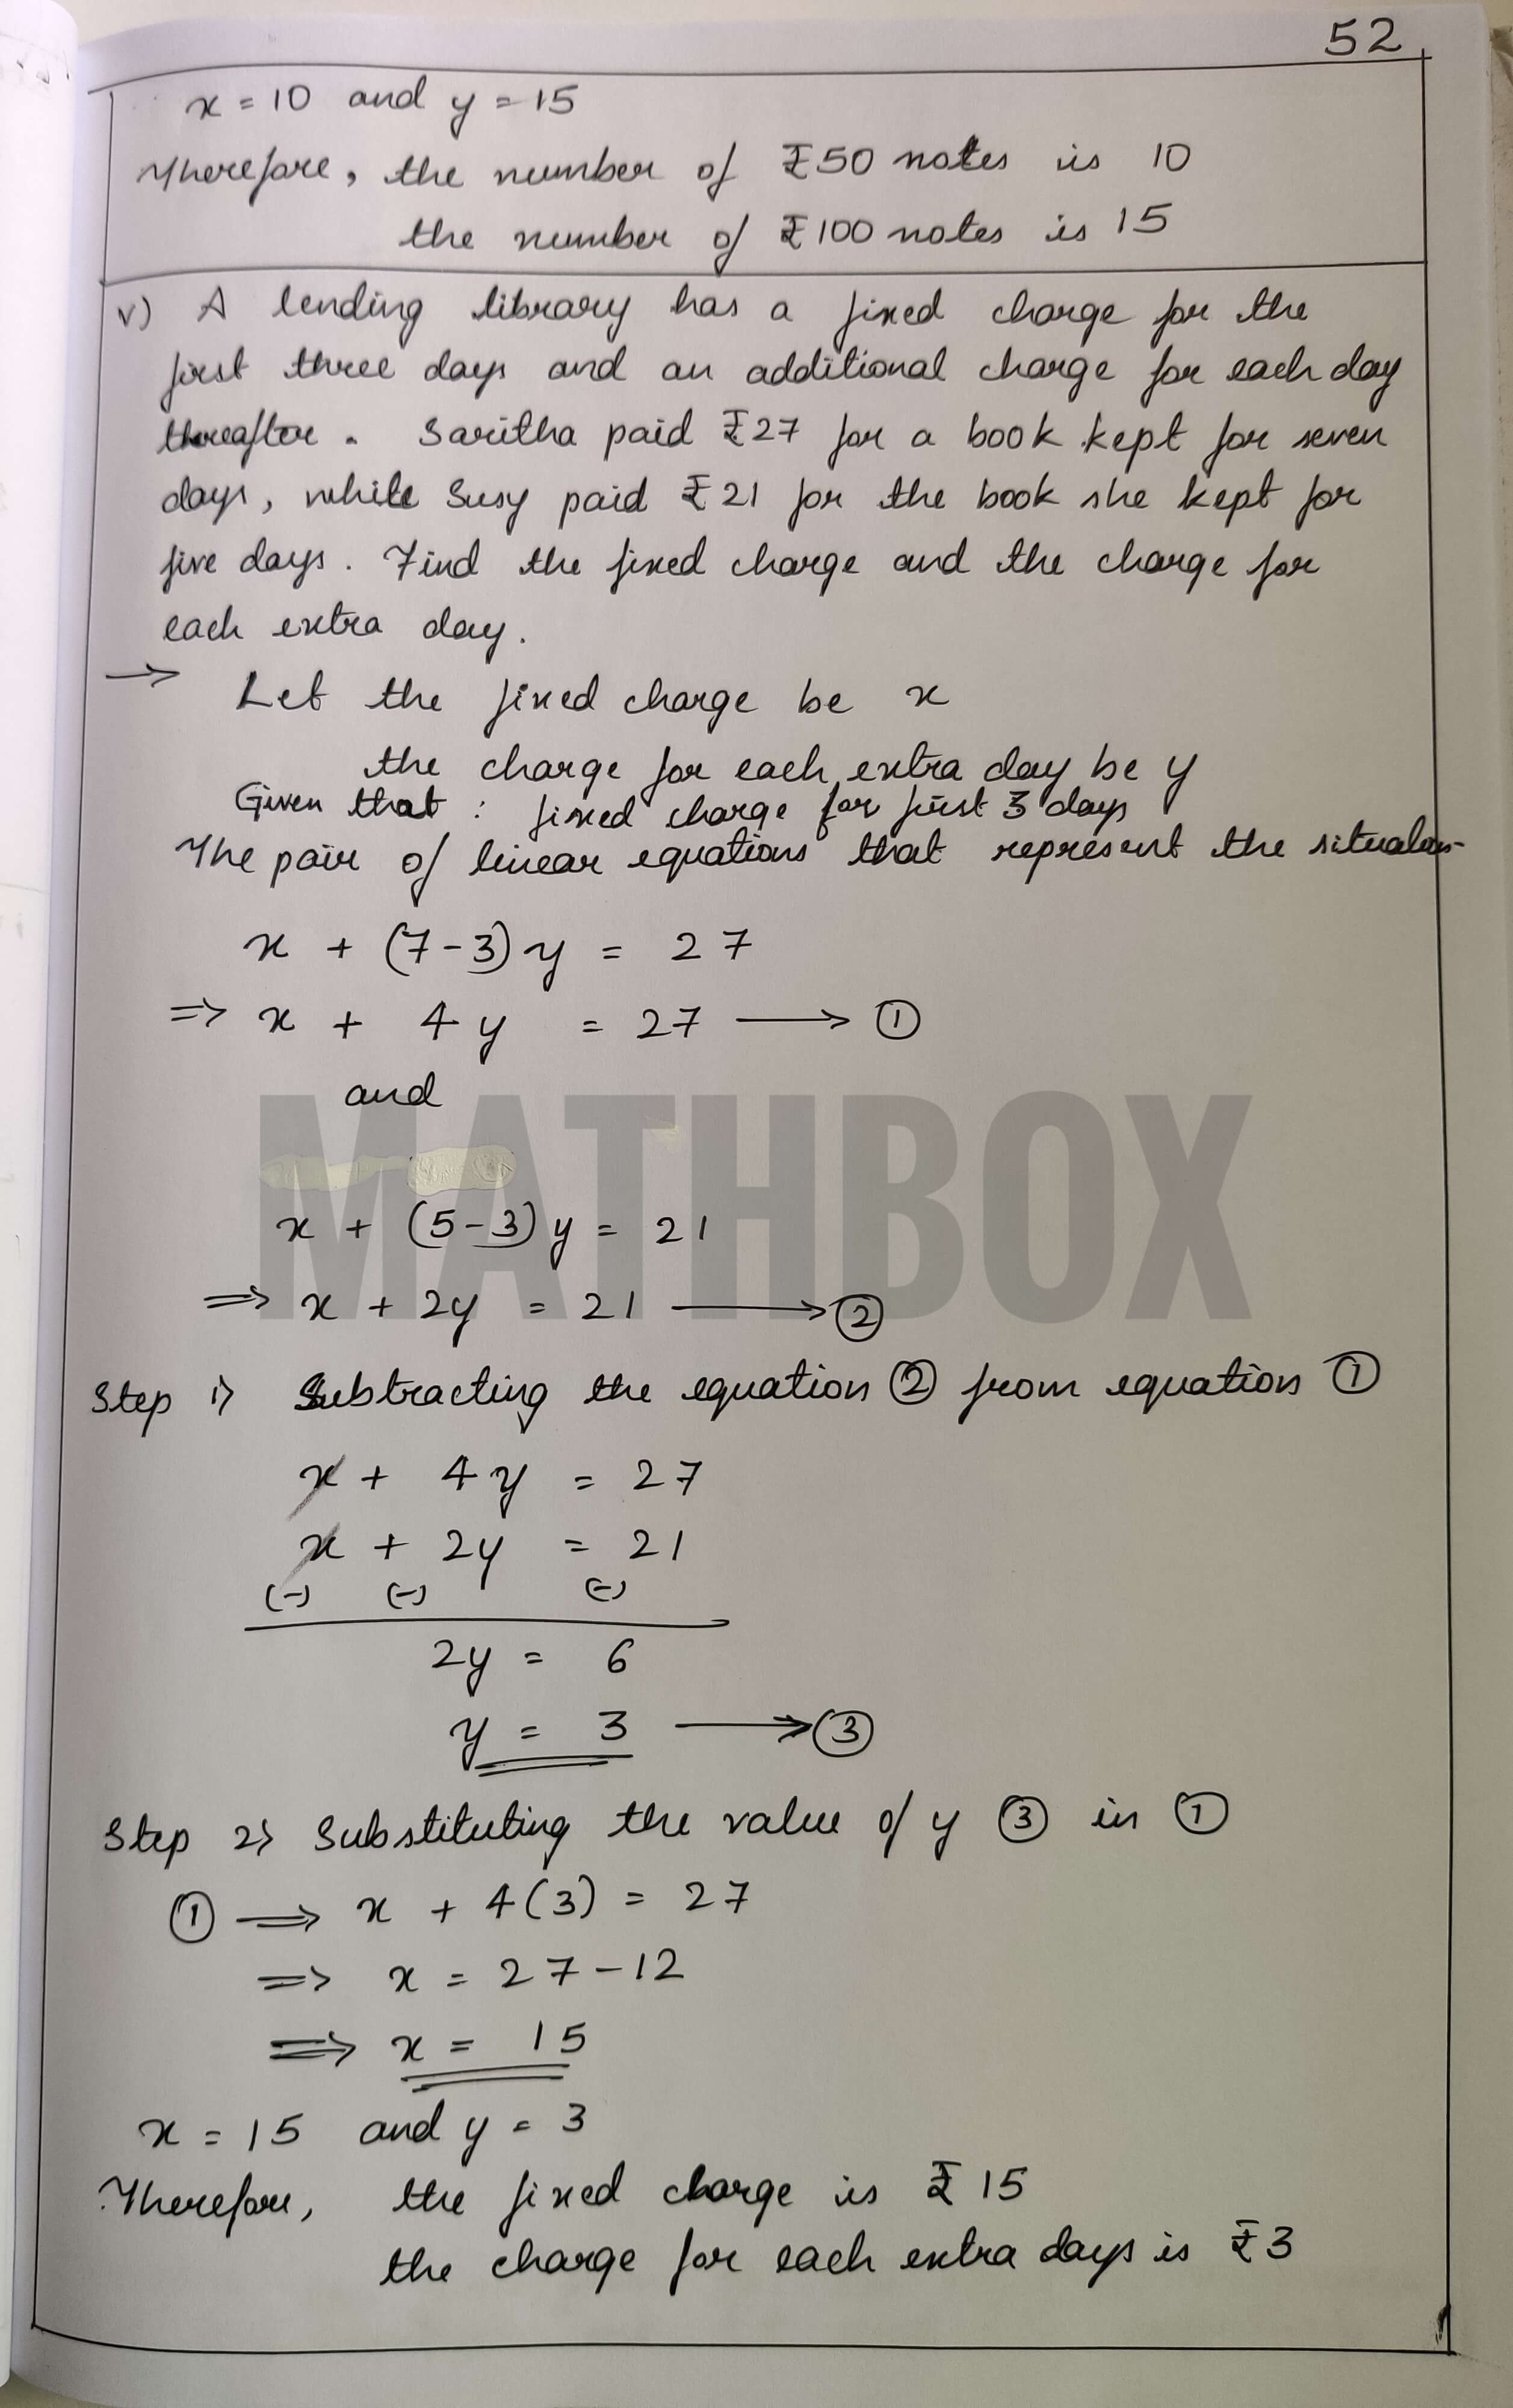 52
x = 10 and y = 15
Therefore, the number of ₹50 notes is 10
the number of ₹100 notes is 15
v) A lending library has a fixed charge for the
first three days and an additional charge for each day
thereafter. Saritha paid ₹27 for a book kept for seven
days, while Susy paid ₹21 for the book she kept for
five days. Find the fixed charge and the charge for
each extra day.
→ Let the fixed charge be x
the charge for each extra day be y
Given that : fixed charge for first 3 days
The pair of linear equations that represent the situation
x + (7-3)y = 27
⇒ x + 4y = 27 → ①
and
MATHBOX
x + (5-3)y = 21
⇒ x + 2y = 21 → ②
Step 1) Subtracting the equation ② from equation ①
x + 4y = 27
x + 2y = 21
(-) (-) (-)
2y = 6
y = 3 → ③
Step 2) Substituting the value of y ③ in ①
① ⇒ x + 4(3) = 27
⇒ x = 27-12
⇒ x = 15
x = 15 and y = 3
Therefore, the fixed charge is ₹15
the charge for each extra days is ₹3